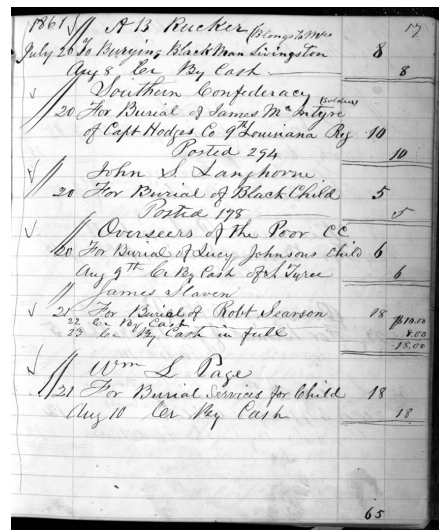 1861 A B Rucker (Blongs to Mrs 17
July 20 To Burying Black Man Livingston 8
Aug 8 Cr By Cash 8
Southern Confederacy (Soldier)
20 For Burial of James McIntyre
of Capt Hodges Co 9th Louiniana Reg 10
Posted 294 10
John S. Langhorne
20 For Burial of Black Child 5
Postid 178 5
Overseers of the Poor CC
20 For Burial of Lucy Johnsons Child 6
Aug 9th Cr By Cash of S Tyree 6
James Slaven
21 For Burial of Robt Searson 18
22 Cr By Cash $10.00
23 Cr By Cash in full 8.00
18.00
Wm S. Page
21 For Burial Services for Child 18
Aug 10 Cr By Cash 18
65